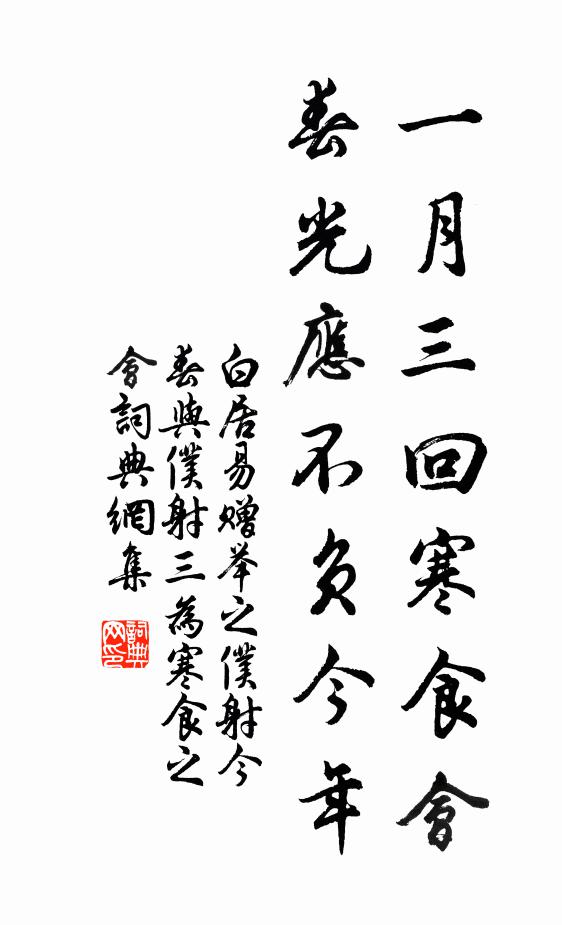 一月三回寒食會
春光應不負今年
白居易贈举之僕射今
春與僕射三為寒食之
會詞典網集
詞典网印